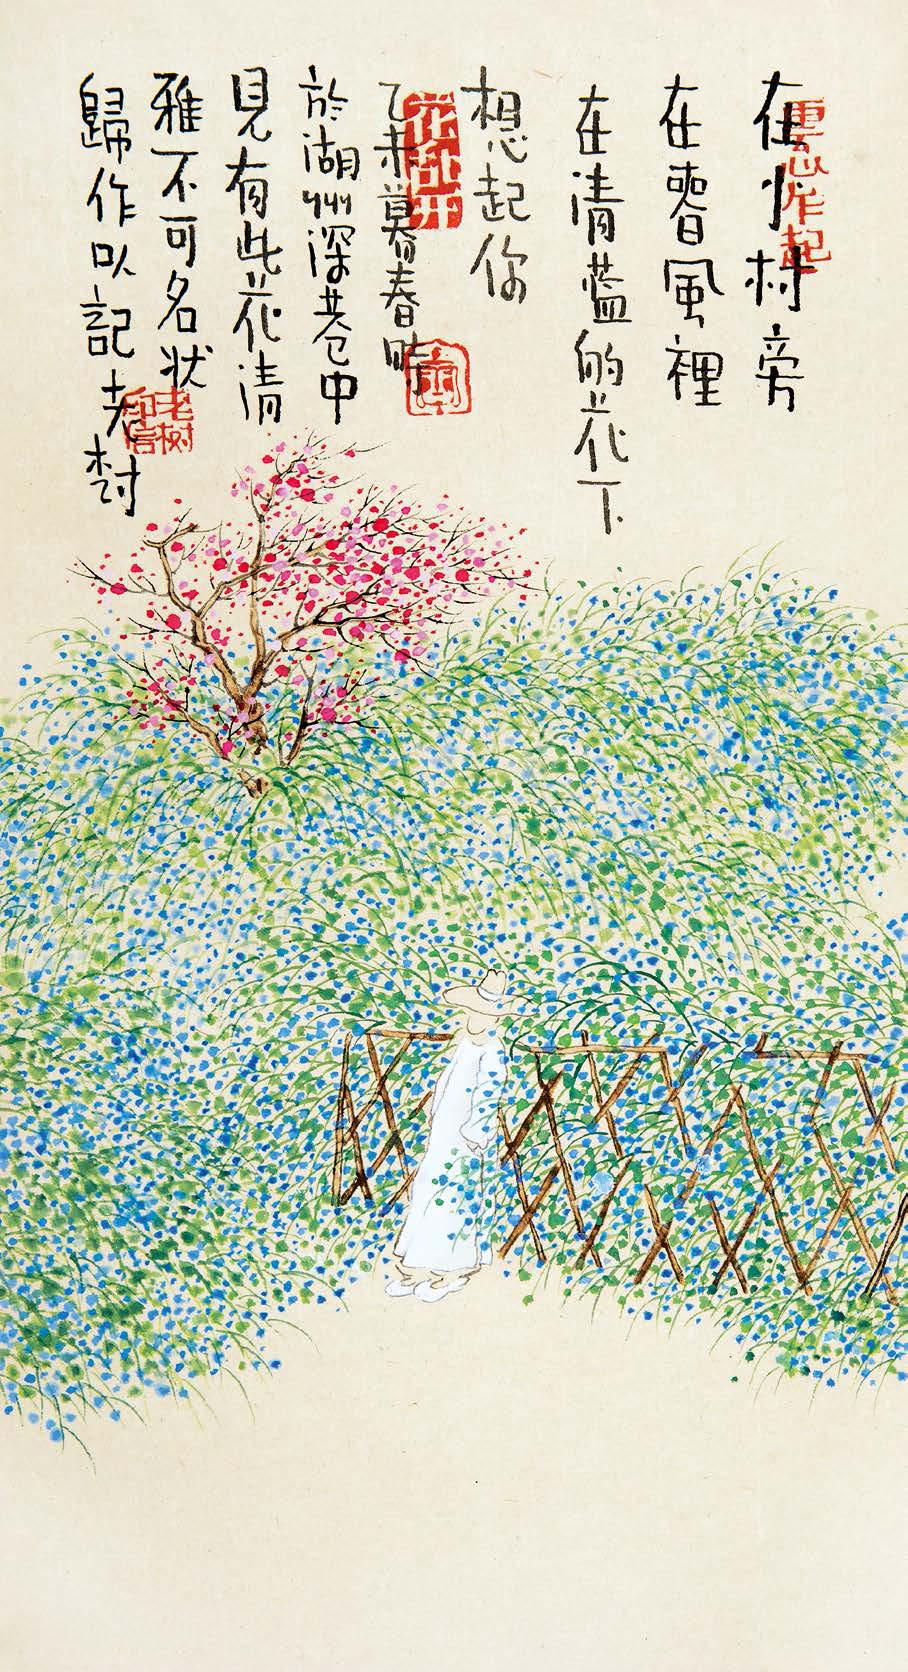 在小村旁
在春風裡
在清藍的花下
想起你
乙未暮春時
於湖州深巷中
見有此花清
雅不可名状
歸作以記老樹
花乱开
老树印信